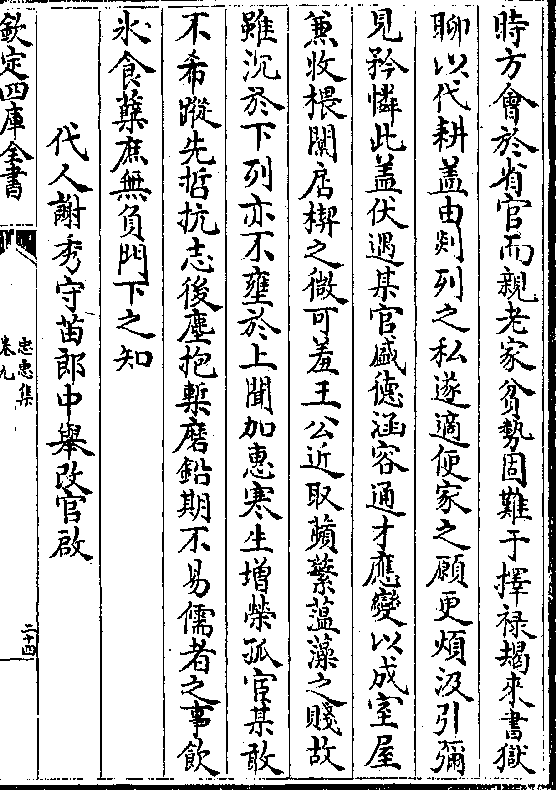 時方會於省官而親老家貧勢固難于擇祿朅來書獄
聊以代耕盖由剡列之私遂適便家之願更煩汲引彌
見矜憐此盖伏遇某官盛德涵容通才應變以成室屋
兼收椳闑扂楔之微可羞王公近取蘋蘩薀藻之賤故
雖沉於下列亦不壅於上聞加惠寒生增榮孤宦某敢
不希蹤先哲抗志後塵抱槧磨鉛期不易儒者之事飲
氷食蘖庶無負門下之知
代人謝秀守苗郎中舉改官啟
欽定四庫全書
忠惠集
卷九
二十四